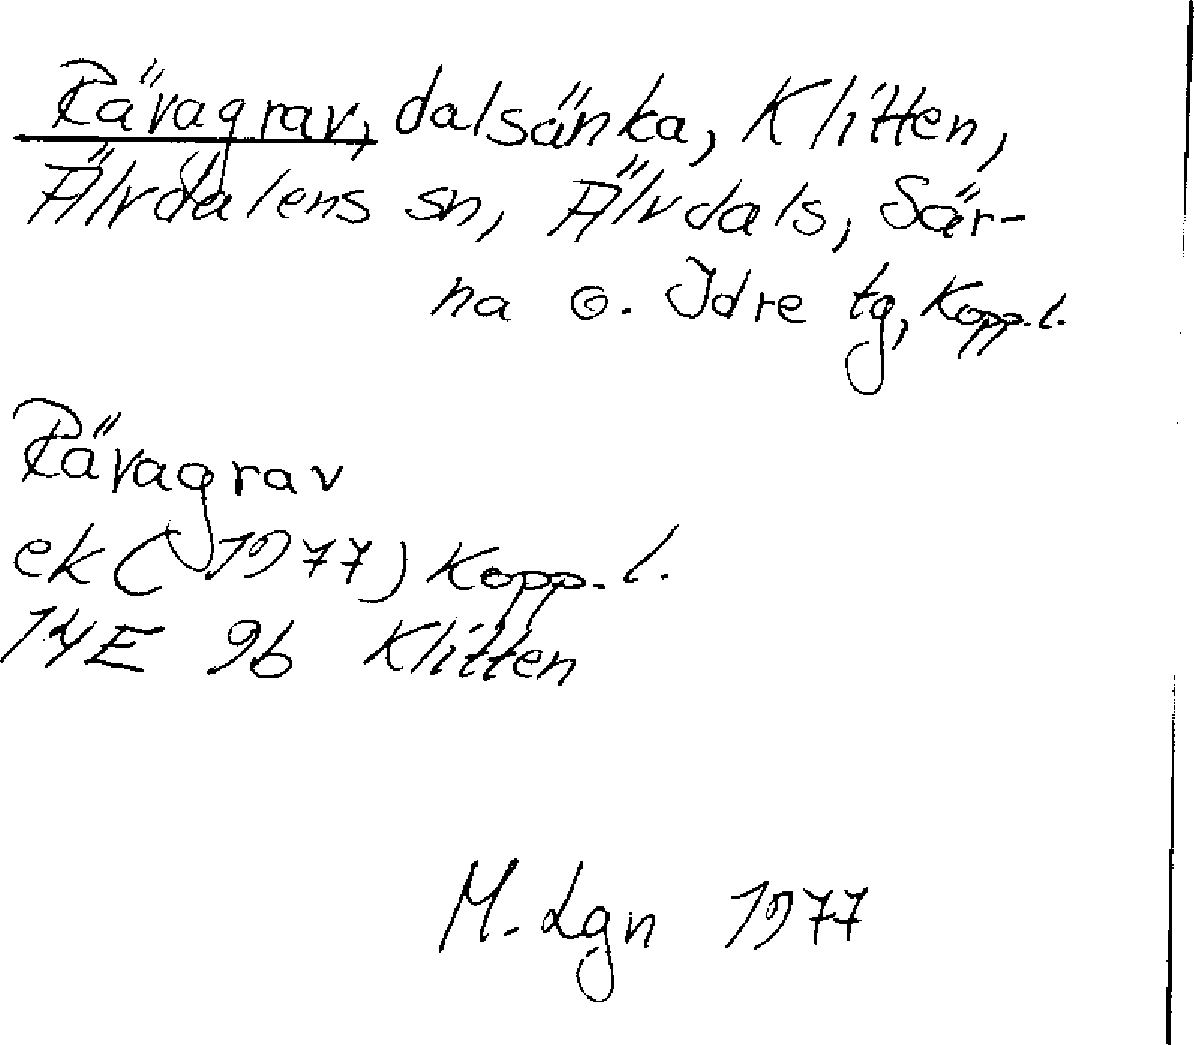 Rävagrav, dalsänka, Klitten,
Älvdalens sn, Älvdals, Sär-
na o. Idre tg, Kopp. l.
Rävagrav
ek (1977) Kopp. l.
14E 9b Klitten
M. Lgn 1977